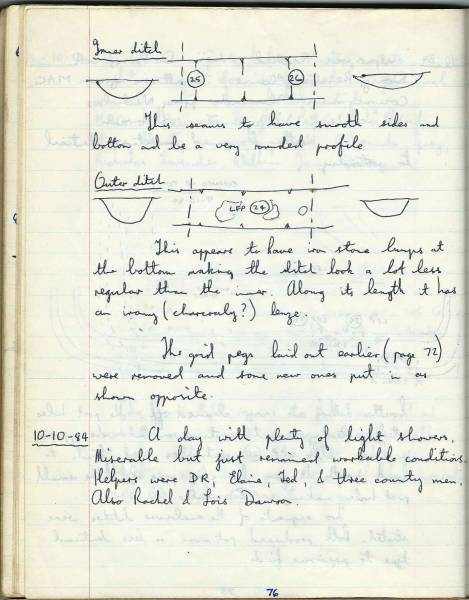 Inner ditch
25 26
This seems to have smooth sides and
bottom and be a very rounded profile
Outer ditch
LFP 24
This appears to have iron stone lumps at
the bottom making the ditch look a lot less
regular than the inner. Along its length it has
an irony (charcoaly?) lenze.
The grid pegs laid out earlier (page 72)
were removed and some new ones put in as
shown opposite.
10-10-84 A day with plenty of light showers.
Miserable but just remained workable conditions.
Helpers were DR, Elaine, Ted, & three county men.
Also Rachel & Lois Dawson.
76